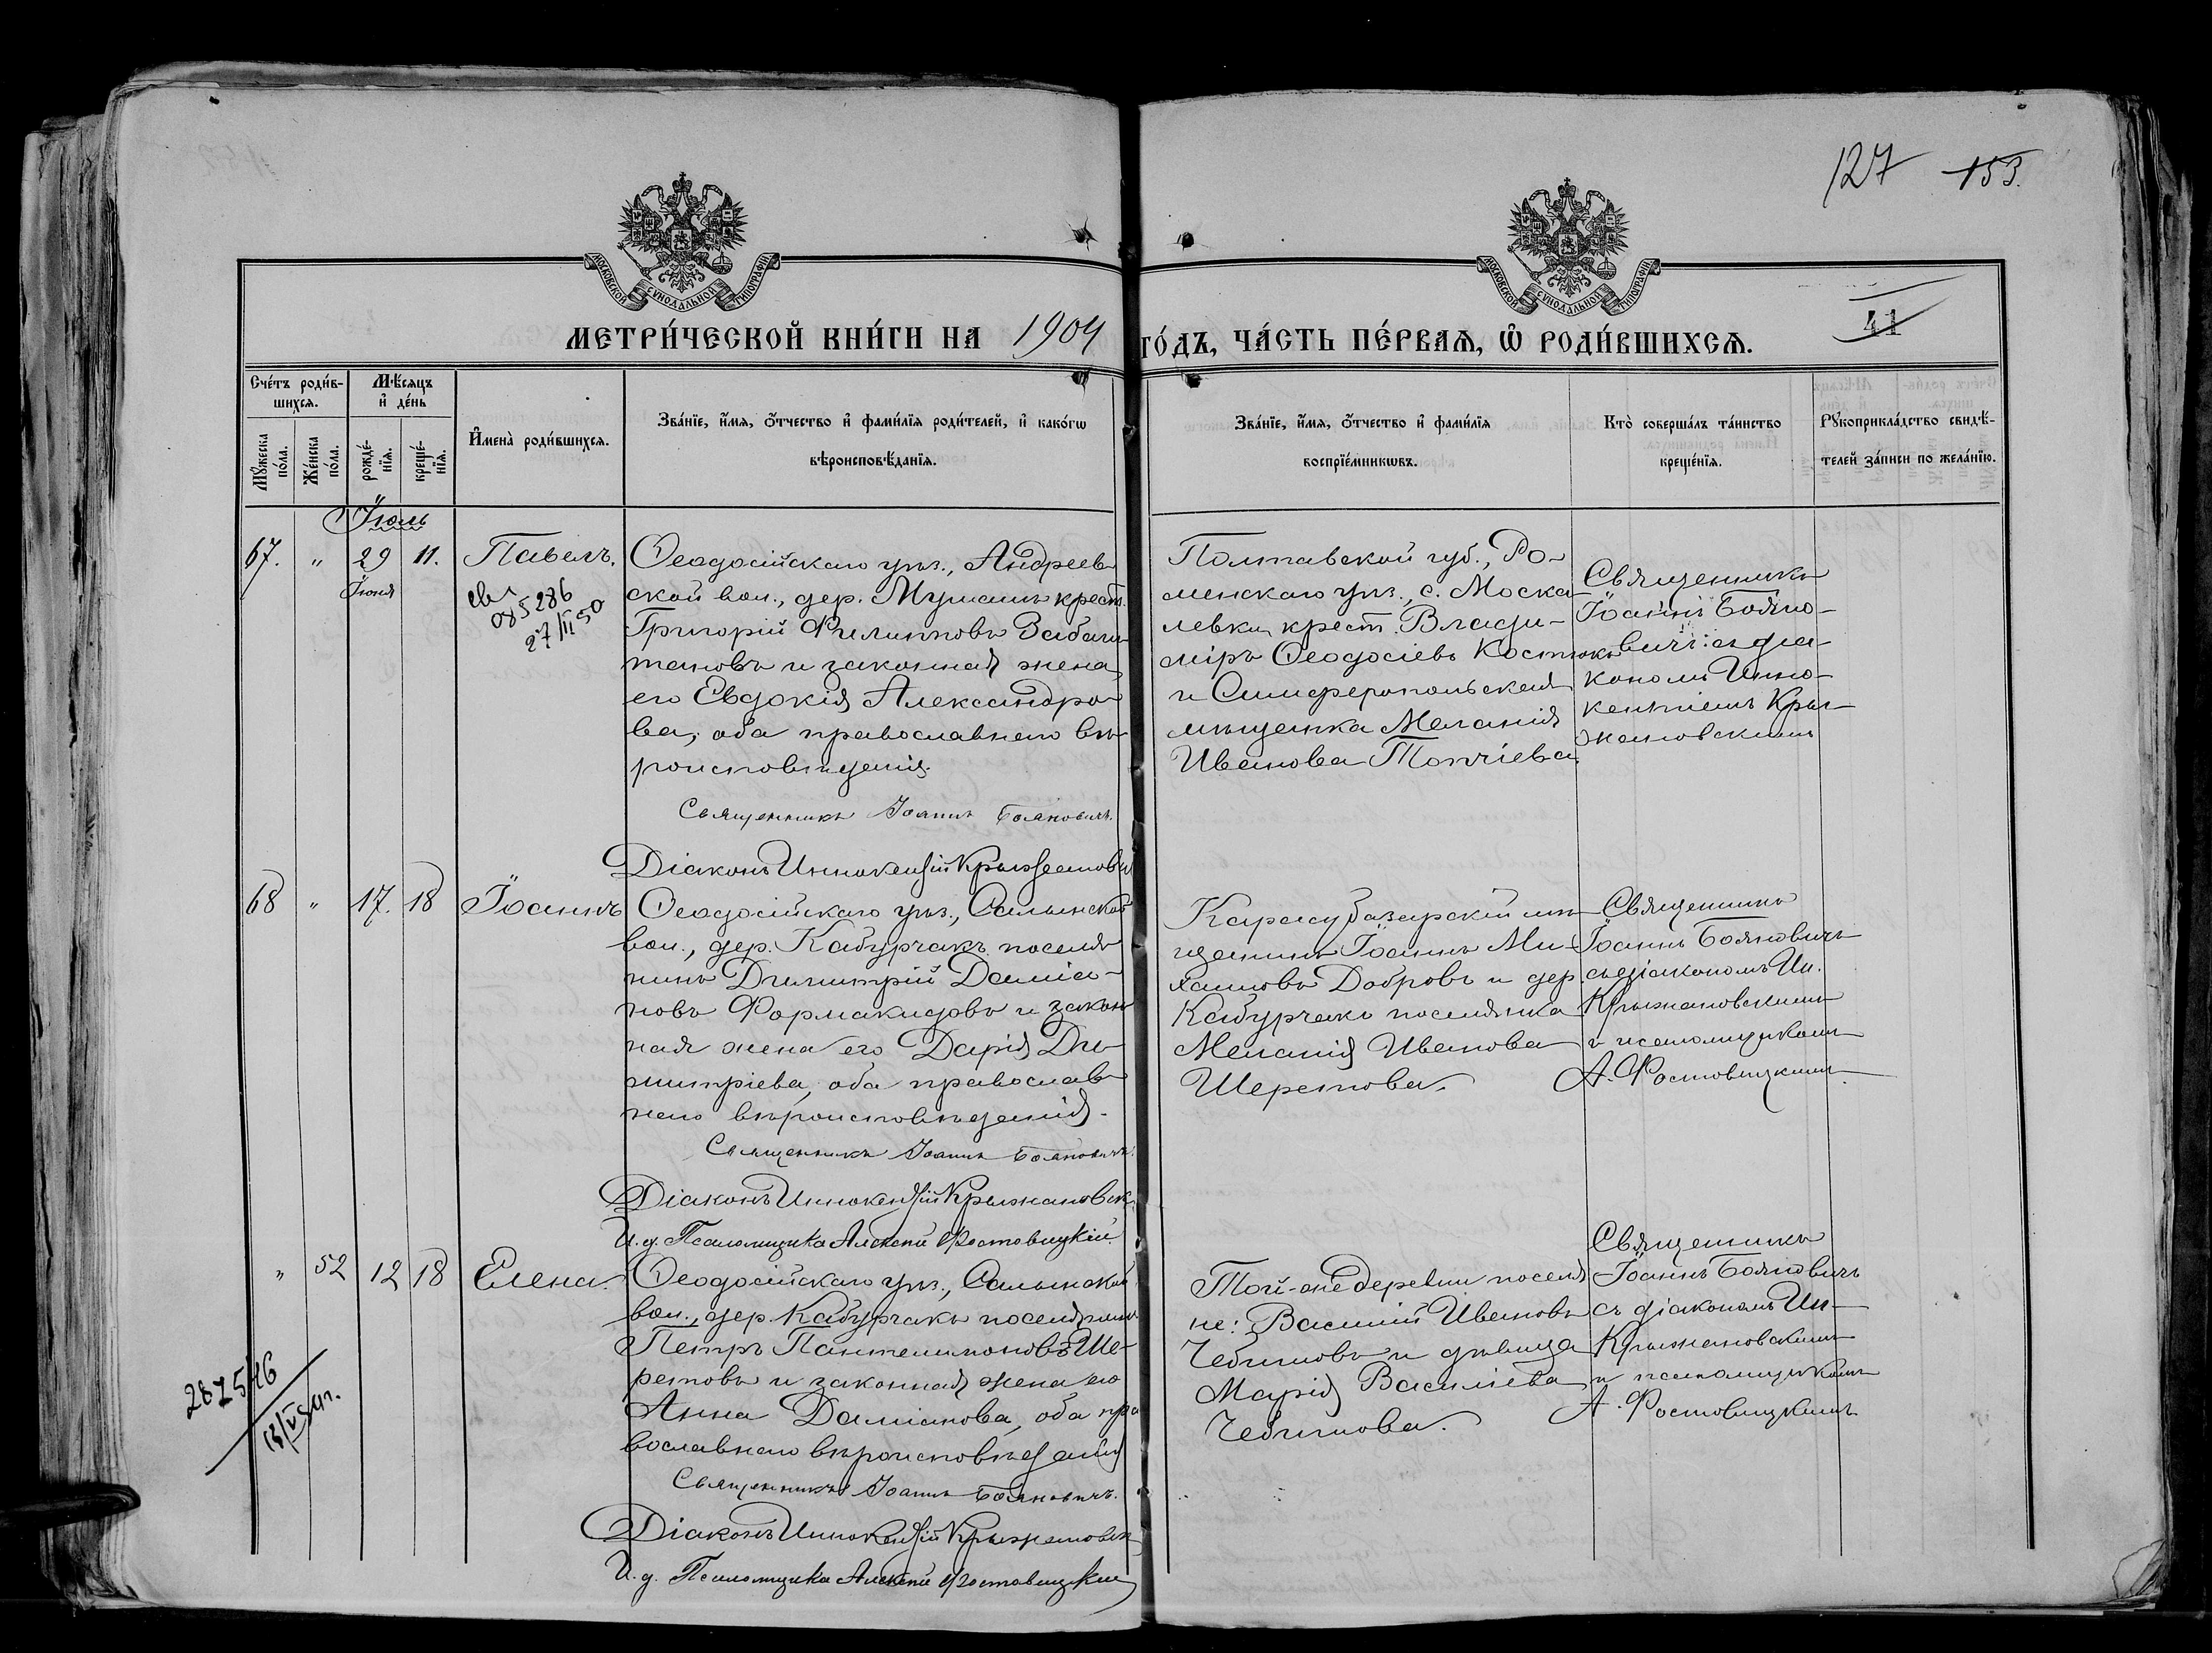 127 153.
МОСКОВСКОЙ СѴНОДАЛЬНОЙ ТИПОГРАФІИ
МОСКОВСКОЙ СѴНОДАЛЬНОЙ ТИПОГРАФІИ
МЕТРИ́ЧЕСКОЙ КНИ́ГИ НА 1904 ГО́ДЪ, ЧА́СТЬ ПЕ́РВАѦ, Ѿ РОДИ́ВШИХСѦ.
41
Сче́тъ роди́в-
шихсѧ.
Мꙋжеска по́ла.
Же́нска по́ла.
Мѣ́сѧцъ
и҆ де́нь
рожде́-
нїѧ.
креще́-
нїѧ.
И҆мена̀ роди́вшихсѧ.
Зва́нїе, и҆́мѧ, ѻ҆́тчество и҆ фами́лїѧ роди́телей, и҆ како́гѡ
вѣроисповѣ́данїѧ.
Зва́нїе, и҆́мѧ, ѻ҆́тчество и҆ фами́лїѧ
воспрїе́мникѡвъ.
Кто̀ соверша́лъ та́инство
креще́нїѧ.
Рꙋкоприкла́дство свидѣ́-
телей за́писи по жела́нїю.
Іюль
67. " 29 11. Павелъ.
Іюня
085286
27/II 50
Ѳеодосійскаго уѣз., Андреев-
ской вол., дер. крест.
Григорій Филипповъ
и законная жена
его Евдокія Александро-
ва, оба православнаго вѣ-
роисповѣданія.
Священникъ Іоаннъ Бояновичъ.
Діаконъ Иннокентій Крыжановск
Полтавской губ., Ро-
менскаго уѣз., с. Моска-
левки крест. Влади-
міръ Ѳеодосіевъ Костюкъ
и Симферопольская
мѣщанка Меланія
Иванова Топчіева.
Священникъ
Іоаннъ Бояно-
вичъ съ діа-
кономъ Инно-
кентіемъ Кры-
жановскимъ
68 " 17. 18 Іоаннъ
Ѳеодосійскаго уѣз., Салынской
вол., дер. Кабурчакъ поселя-
нинъ Димитрій Даміа-
новъ Формакидовъ и закон-
ная жена его Дарія Ди-
митріева, оба православ-
наго вѣроисповѣданія.
Священникъ Іоаннъ Бояновичъ.
Діаконъ Иннокентій Крыжановск
И. д. Псаломщика Алексѣй Фостовицкій.
Карасубазарскій мѣ-
щанинъ Іоаннъ Ми-
хаиловъ Добровъ и дер.
Кабурчакъ поселянка
Меланія Иванова
Шеремова.
Священникъ
Іоаннъ Бояновичъ
съ діакономъ Ин.
Крыжановскимъ
и псаломщикомъ
А. Фостовицкимъ
" 52 12 18 Елена.
287546
Ѳеодосійскаго уѣз., Салынской
вол., дер. Кабурчакъ поселянинъ
Петръ Пантелимоновъ Ше-
ремовъ и законная жена его
Анна Даміанова, оба пра-
вославнаго вѣроисповѣданія
Священникъ Іоаннъ Бояновичъ.
Діаконъ Иннокентій Крыжановск
И. д. Псаломщика Алексѣй Фостовицкій
Той-же деревни поселя-
не: Василий Ивановъ
Чебишовъ и дѣвица
Марія Василіева
Чебишова.
Священникъ
Іоаннъ Бояновичъ
съ діакономъ Ин-
Крыжановскимъ
и псаломщикомъ
А. Фостовицкимъ